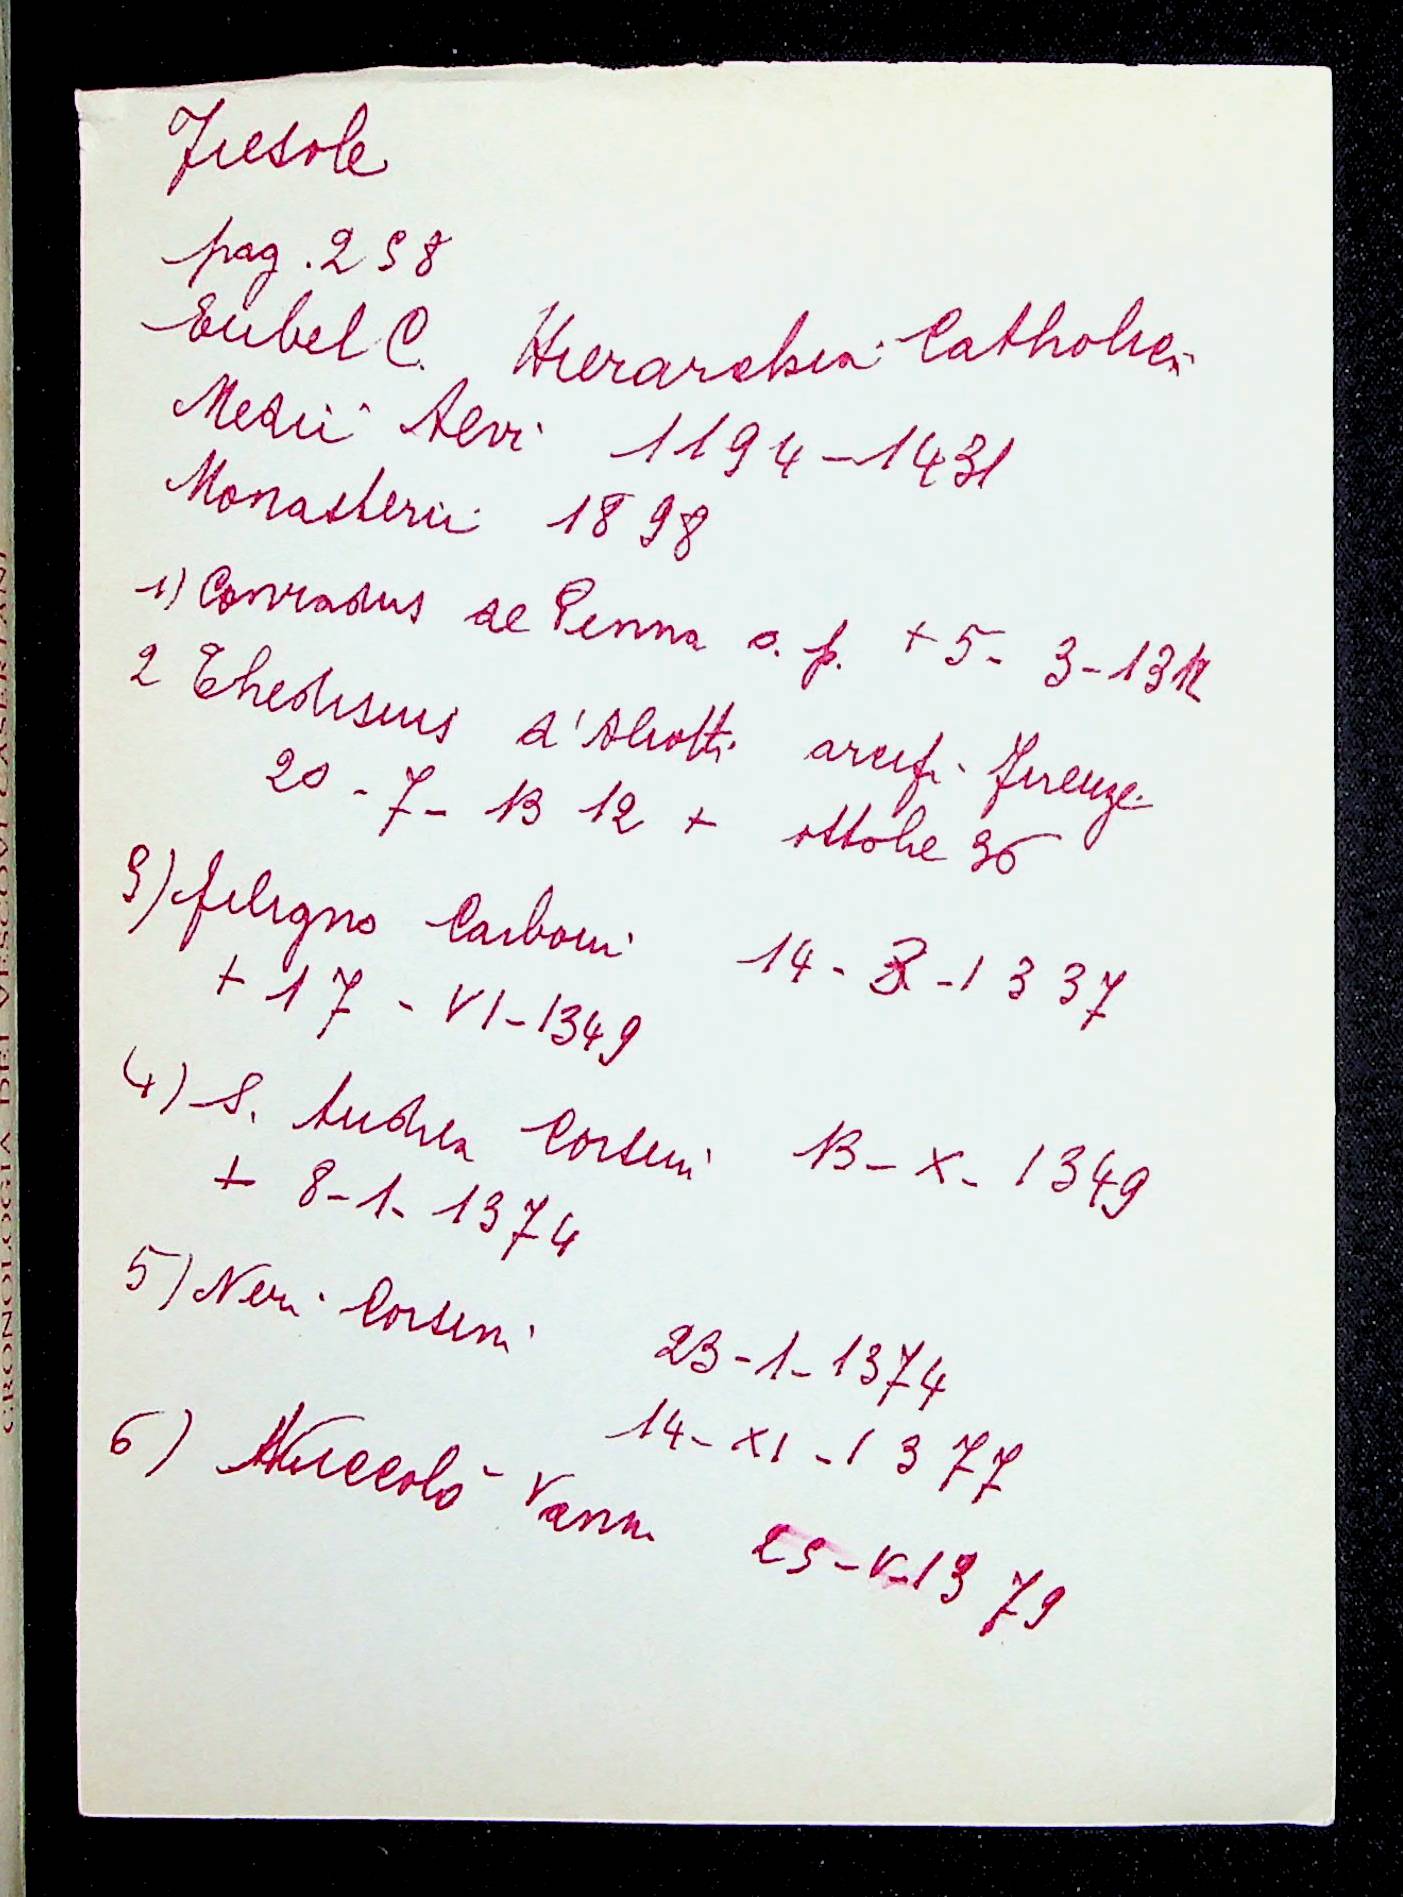 Fiesole
pag. 258
Eubel C. Hierarchia Catholica
Medii Aevi 1194-1431
Monasterii 1898
1) Conradus de Penna o. p. + 5- 3-1312
2 Thedisius d'Aliotti arcip. Firenze
20-7-1312 + ottobre 36
3) fuligno Carboni 14-2-1337
+ 17-VI-1349
4) S. Andrea Corsini 13-X-1349
+ 8-1-1374
5) Neri Corsini 23-1-1374
14-XI-1377
6) Niccolò Vanni 25-V-1379
CRONOLOGIA DEI VESCOVI CASERTANI